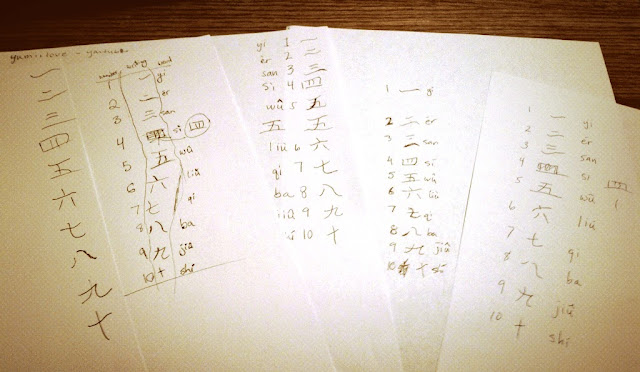 一
二
三
四
五
六
七
八
九
十
1 一 yi
2 二 èr
3 三 san
4 四 si 四
5 五 wŭ
6 六 liù
7 七 qi
8 八 ba
9 九 jiŭ
10 十 shí
yi 1 一
èr 2 二
san 3 三
si 4 四
wû 5 五
五 五
liù 6 六
qi 7 七
ba 8 八
9 九
10 十
1 一 yi
2 二 èr
3 三 san
4 四 si
5 五 wŭ
6 六 liù
7 七 qi
8 八 ba
9 九 jiŭ
10 十 shí
1 一 yi
2 二 èr
3 三 san
4 四 si 四
5 五 wŭ
6 六 liù
7 七 qi
8 八 ba
9 九 jiŭ
10 十 shí